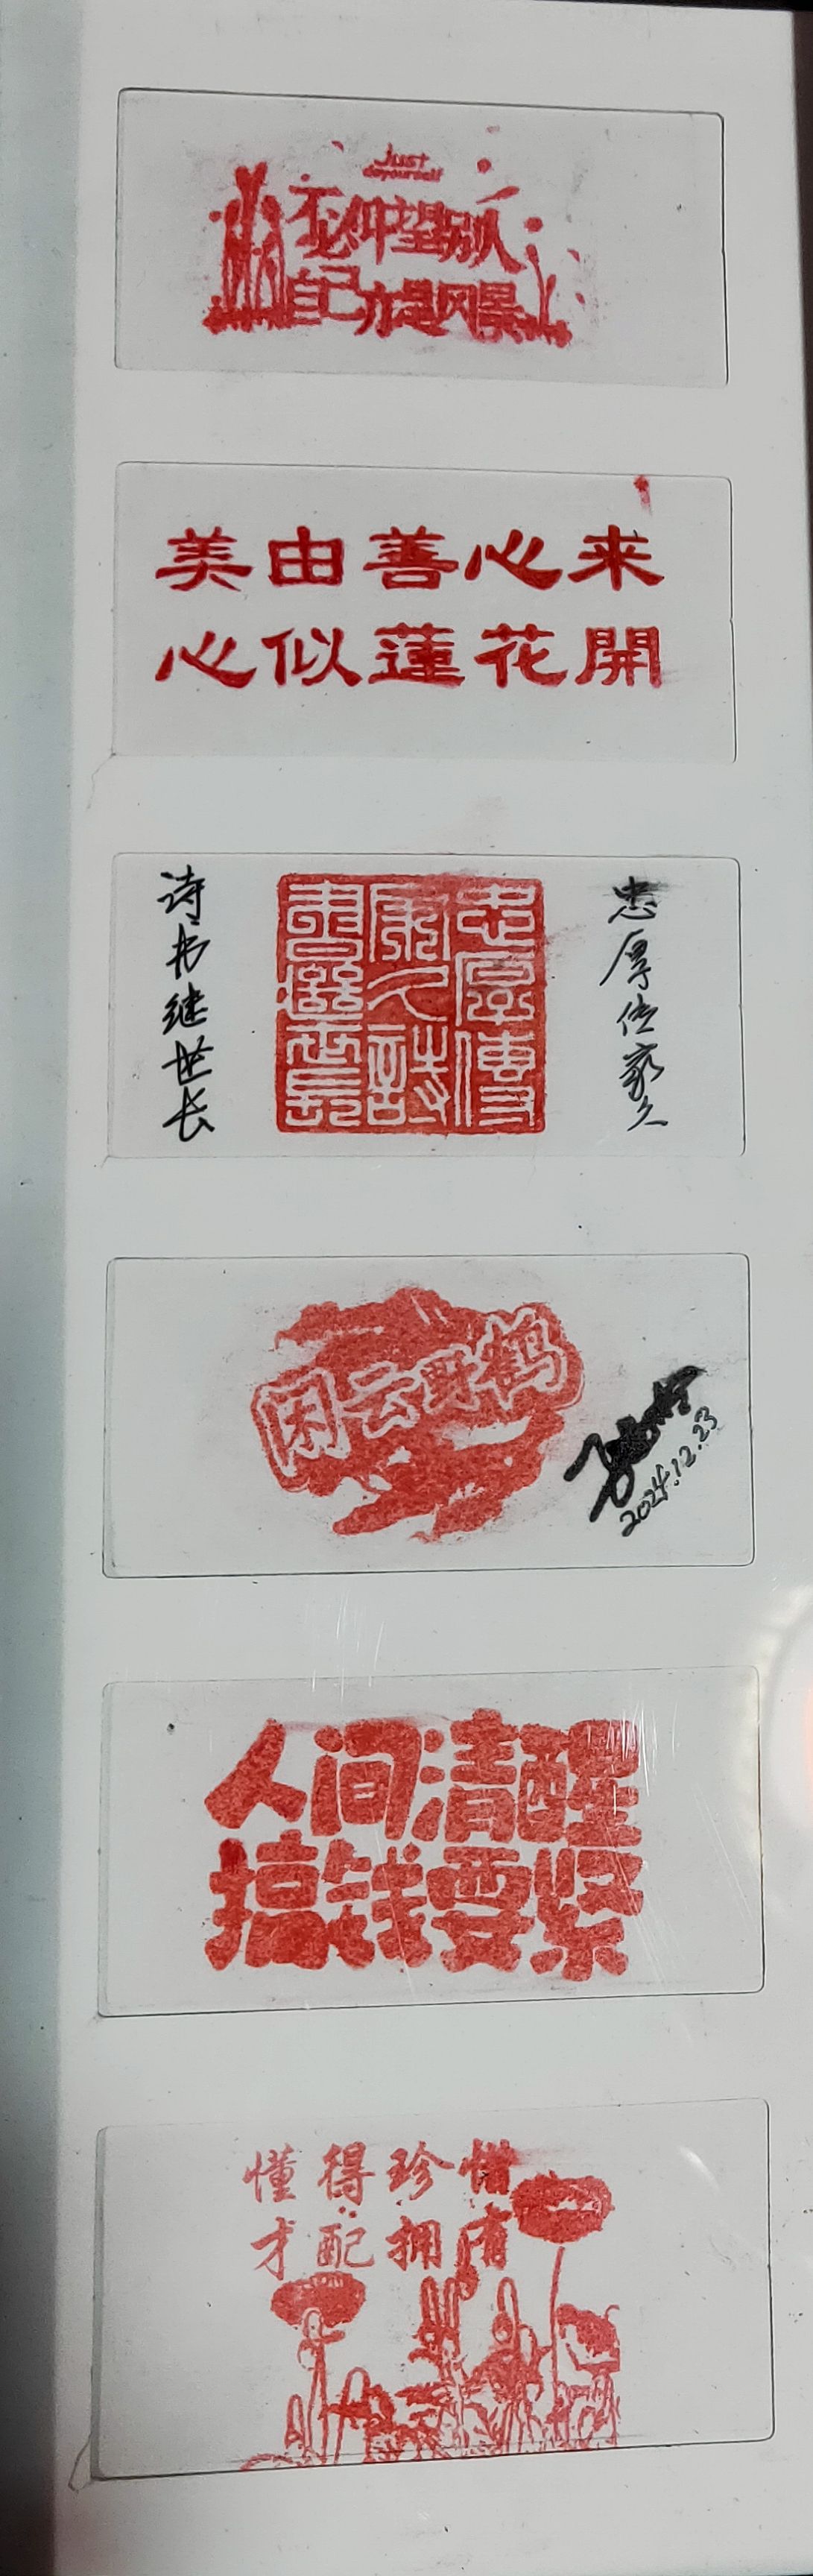 Just
doyourself
不必仰望别人
自己亦是风景
美由善心来
心似蓮花開
忠厚传家久
忠厚傳家久詩書繼世長
诗书继世长
闲云野鹤
2024.12.23
人间清醒
搞钱要紧
懂得珍惜
才配拥有